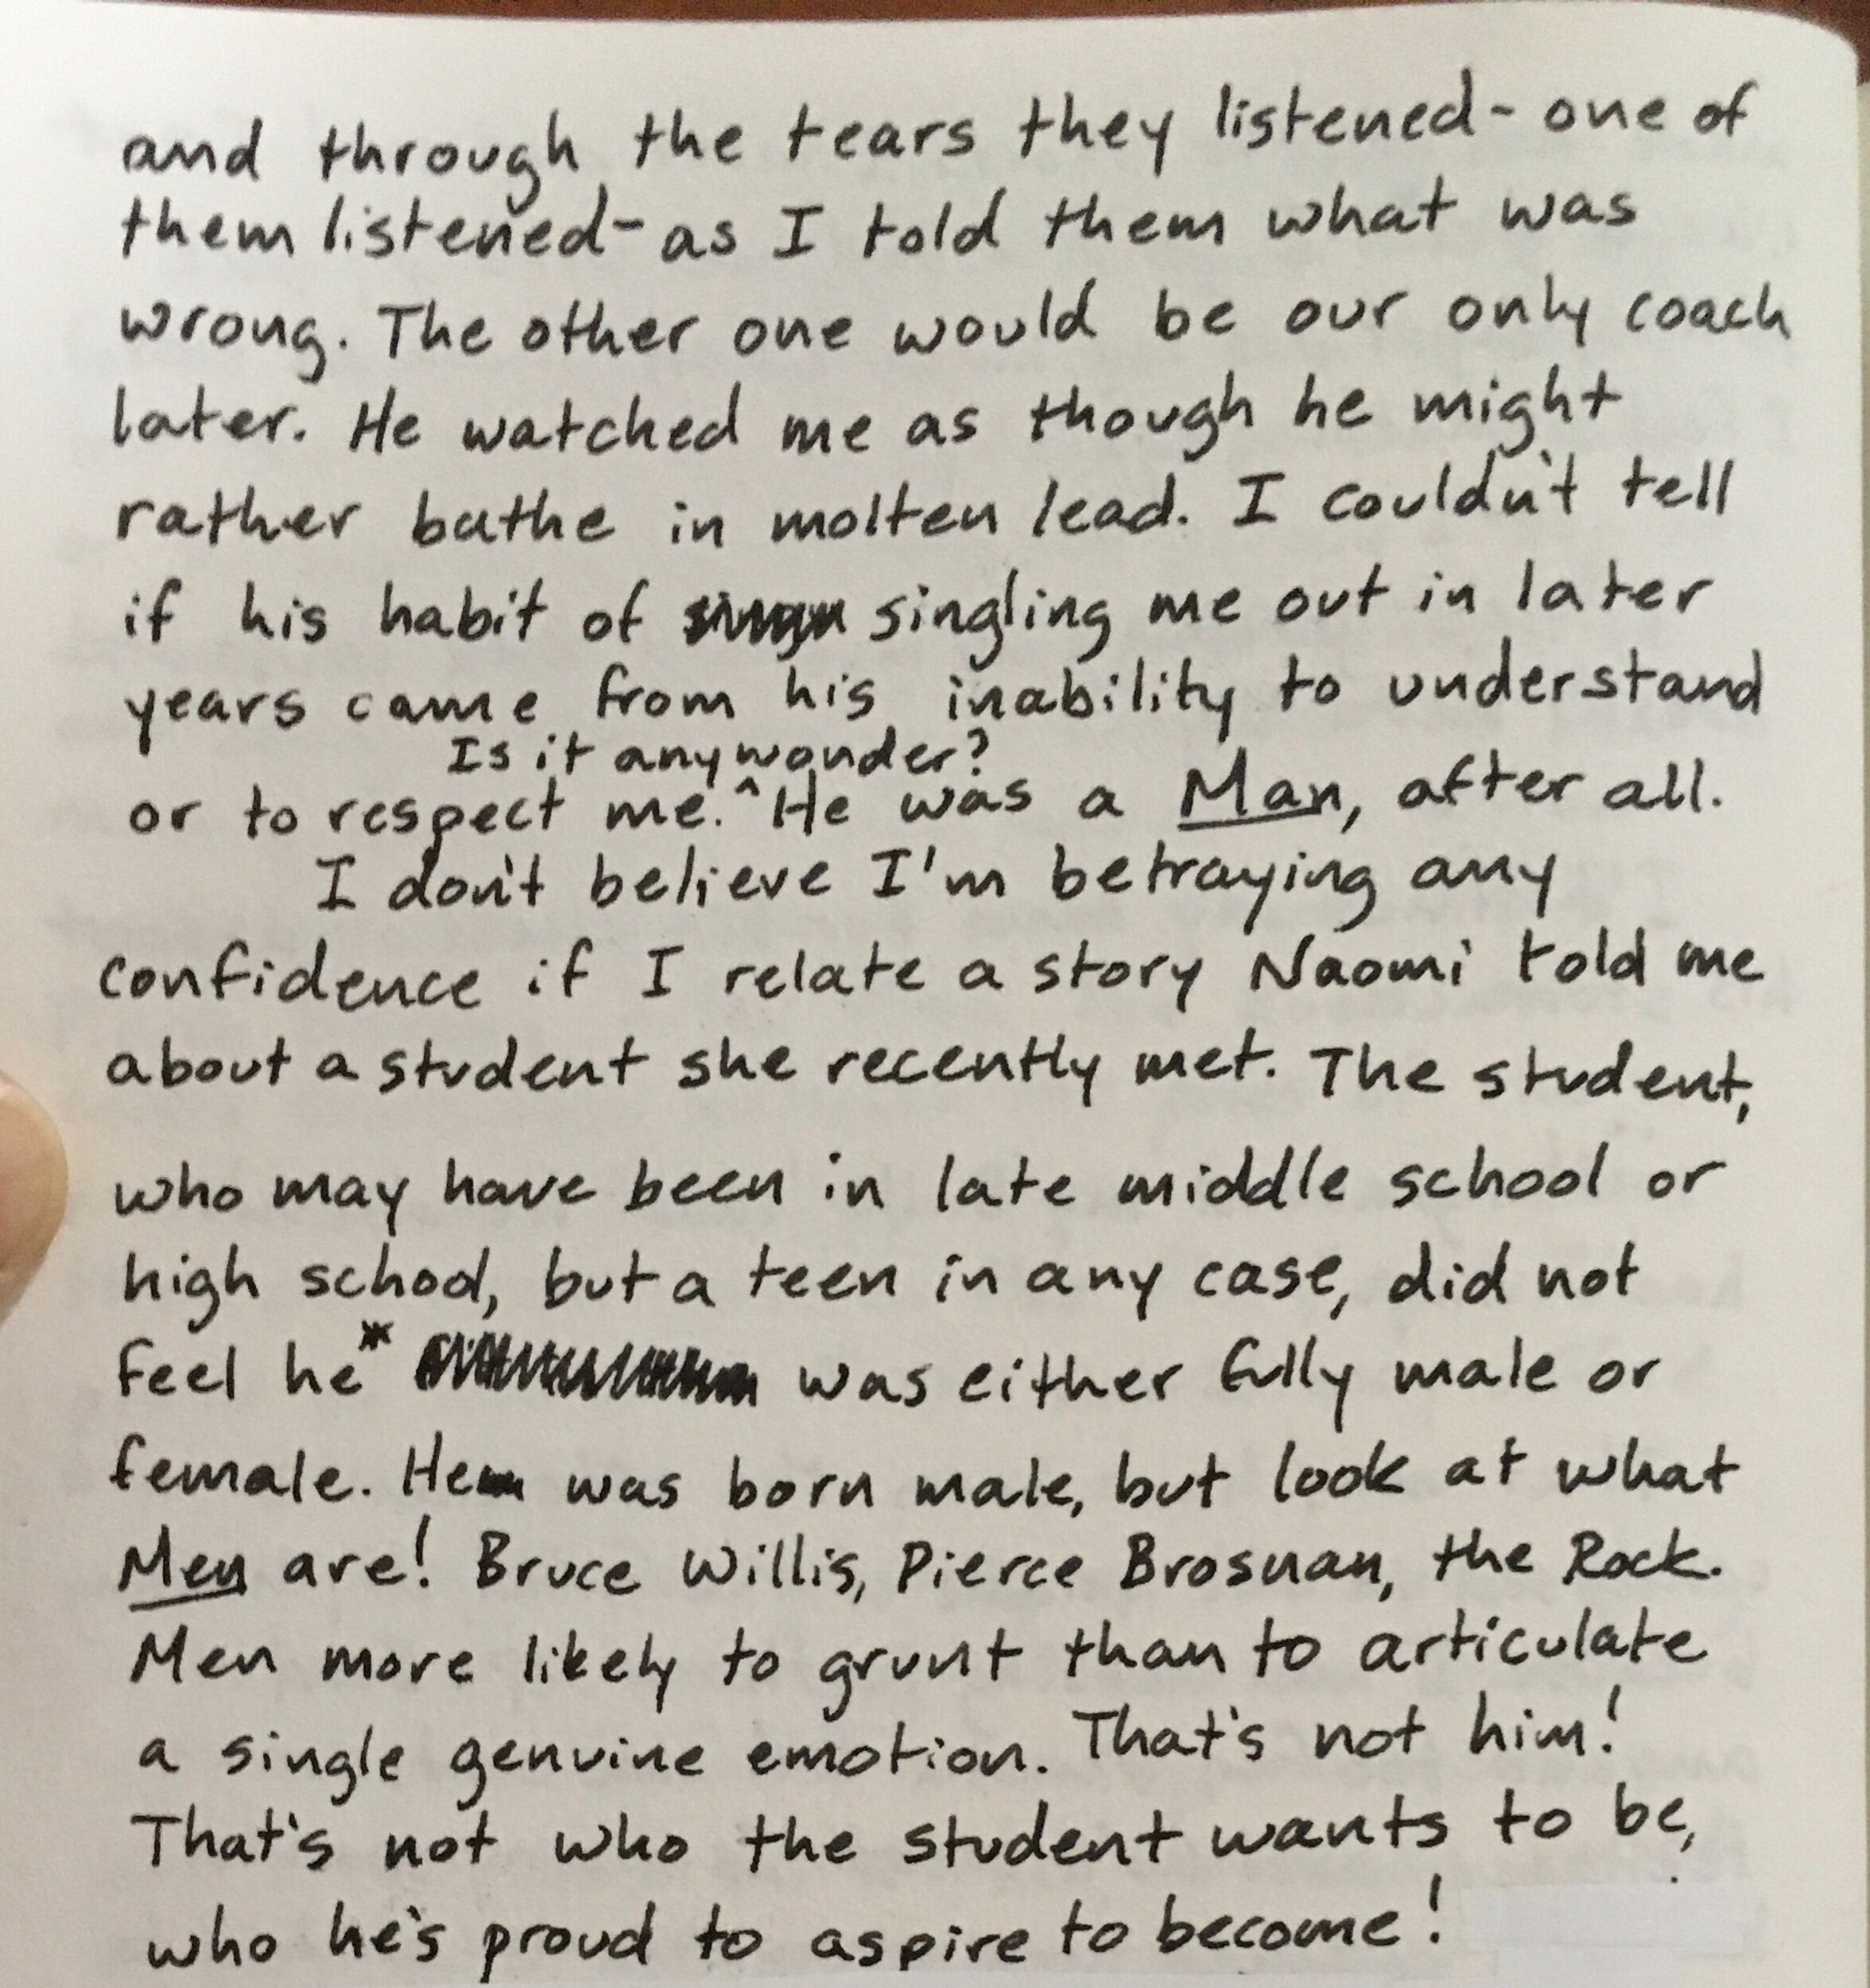 and through the tears they listened - one of
them listened - as I told them what was
wrong. The other one would be our only coach
later. He watched me as though he might
rather bathe in molten lead. I couldn't tell
if his habit of singling me out in later
years came from his inability to understand
Is it any wonder?
or to respect me. ^ He was a Man, after all.
I don't believe I'm betraying any
confidence if I relate a story Naomi told me
about a student she recently met. The student,
who may have been in late middle school or
high school, but a teen in any case, did not
feel he* was either fully male or
female. He was born male, but look at what
Men are! Bruce Willis, Pierce Brosnan, the Rock.
Men more likely to grunt than to articulate
a single genuine emotion. That's not him!
That's not who the student wants to be,
who he's proud to aspire to become!